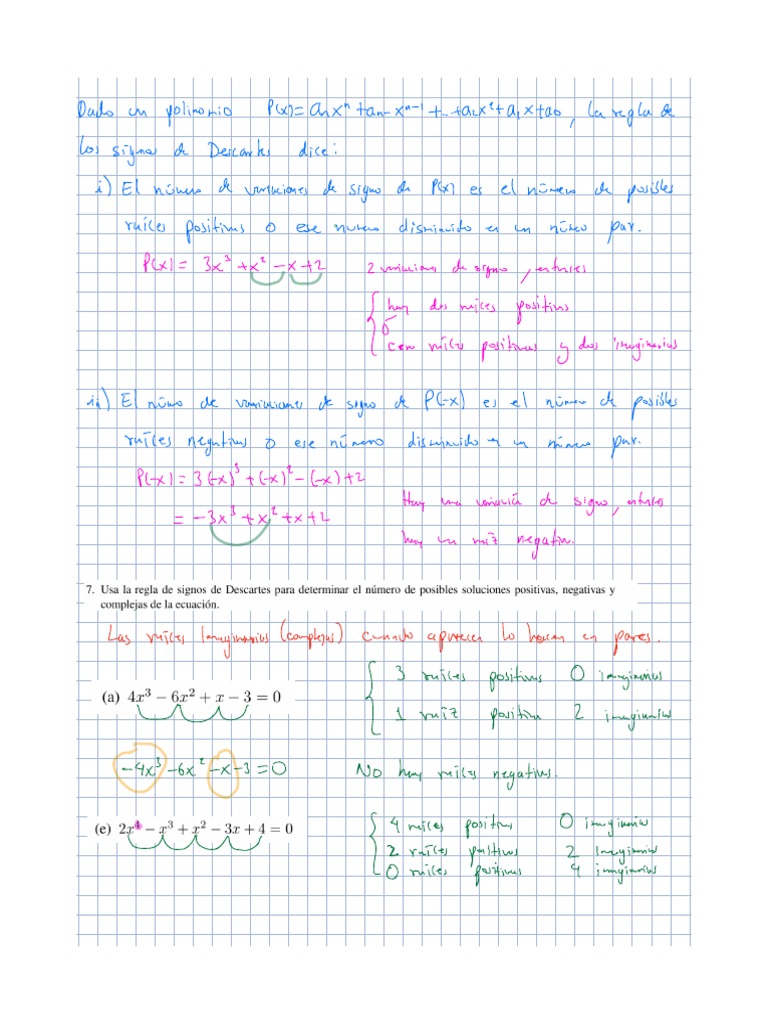 Dado un polinomio P(x)= anxⁿ + an- xⁿ⁻¹ + ... + a2x² + a1x + a0, la regla de
los signos de Descartes dice:
i) El número de variaciones de signo de P(x) es el número de posibles
raíces positivas o ese numero disminuido en un número par.
P(x) = 3x³ + x² - x + 2 2 variaciones de signo, entonces
hay dos raíces positivas
ó
cero raíces positivas y dos imaginarias
ii) El número de variaciones de signo de P(-x) es el número de posibles
raíces negativas o ese número disminuido en un número par.
P(-x) = 3(-x)³ + (-x)² - (-x) + 2
= -3x³ + x² + x + 2
Hay una variación de signo, entonces
hay un raíz negativa.
7. Usa la regla de signos de Descartes para determinar el número de posibles soluciones positivas, negativas y
complejas de la ecuación.
Las raíces Imaginarias (complejas) cuando aparecen lo hacen en pares.
(a) 4x³ − 6x² + x − 3 = 0
3 raíces positivas 0 imaginarias
1 raíz positiva 2 imaginarias
-4x³ -6x² -x -3 = 0 No hay raíces negativas.
(e) 2x⁴ − x³ + x² − 3x + 4 = 0
4 raíces positivas 0 imaginarias
2 raíces positivas 2 Imaginarias
0 raíces positivas 4 imaginarias